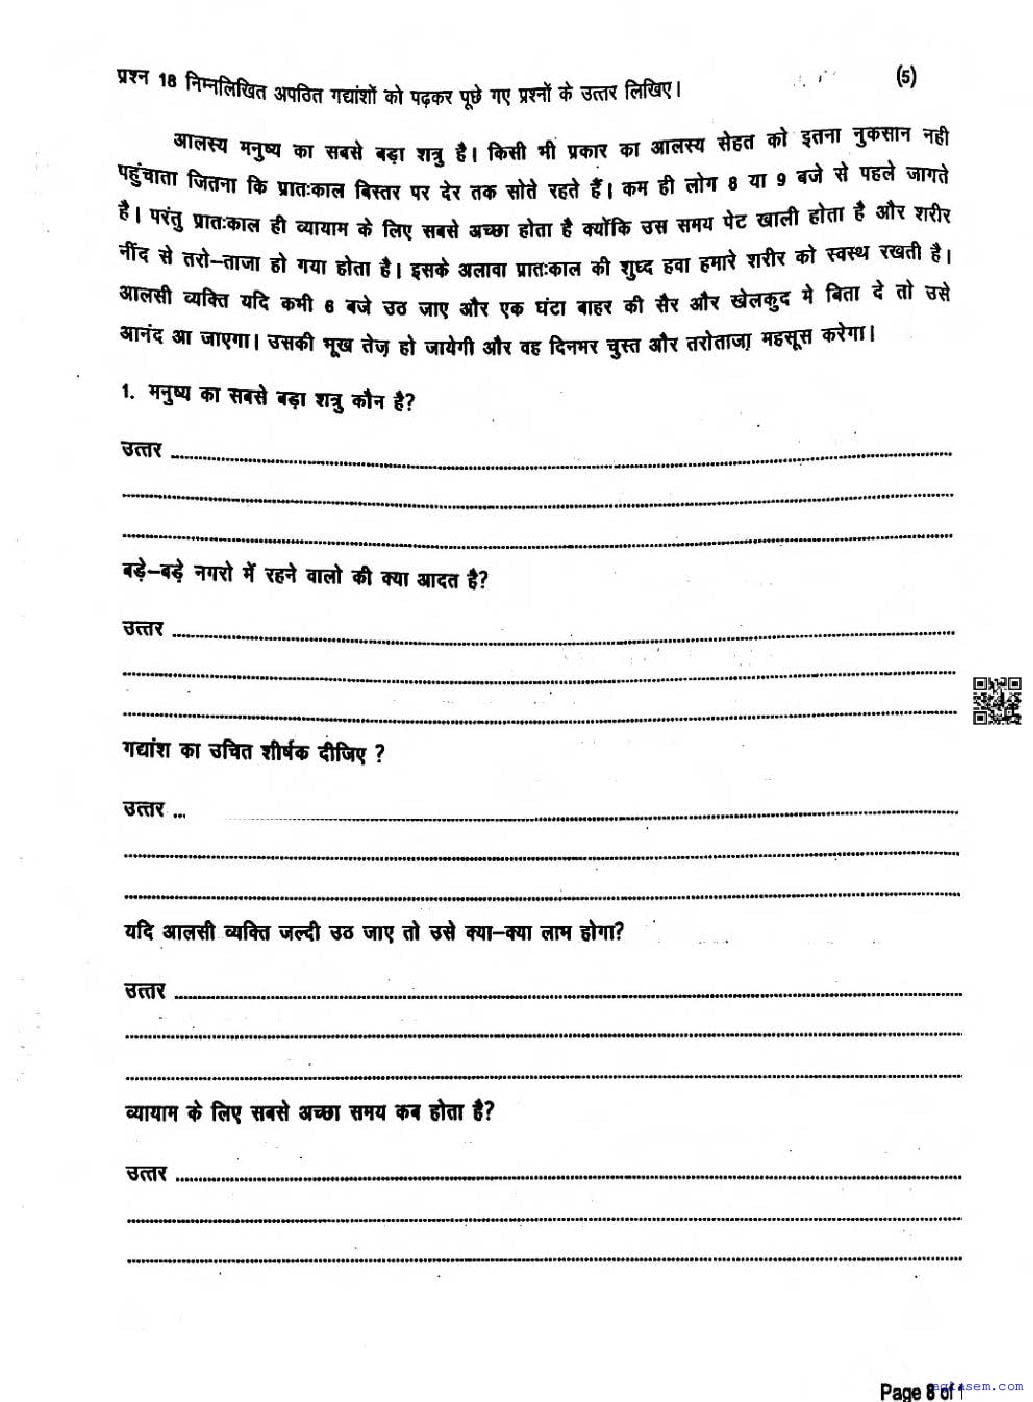 प्रश्न 18 निम्नलिखित अपठित गद्यांशों को पढ़कर पूछे गए प्रश्नों के उत्तर लिखिए। (5)
आलस्य मनुष्य का सबसे बड़ा शत्रु है। किसी भी प्रकार का आलस्य सेहत को इतना नुकसान नही
पहुंचाता जितना कि प्रातःकाल बिस्तर पर देर तक सोते रहते हैं। कम ही लोग 8 या 9 बजे से पहले जागते
है। परंतु प्रातःकाल ही व्यायाम के लिए सबसे अच्छा होता है क्योंकि उस समय पेट खाली होता है और शरीर
नींद से तरो-ताजा हो गया होता है। इसके अलावा प्रातःकाल की शुध्द हवा हमारे शरीर को स्वस्थ रखती है।
आलसी व्यक्ति यदि कभी 6 बजे उठ जाए और एक घंटा बाहर की सैर और खेलकुद मे बिता दे तो उसे
आनंद आ जाएगा। उसकी भूख तेज़ हो जायेगी और वह दिनभर चुस्त और तरोताजा़ महसूस करेगा।
1. मनुष्य का सबसे बड़ा शत्रु कौन है?
उत्तर
बड़े-बड़े नगरो में रहने वालो की क्या आदत है?
उत्तर
गद्यांश का उचित शीर्षक दीजिए ?
उत्तर ...
यदि आलसी व्यक्ति जल्दी उठ जाए तो उसे क्या-क्या लाभ होगा?
उत्तर
व्यायाम के लिए सबसे अच्छा समय कब होता है?
उत्तर
Page 8 of 1
aglasem.com